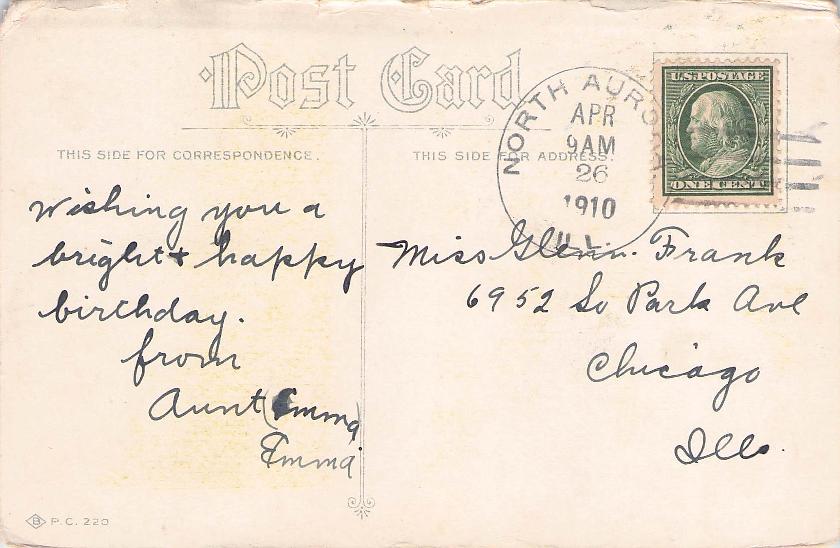 Post Card
THIS SIDE FOR CORRESPONDENCE.
THIS SIDE FOR ADDRESS.
NORTH AURO
APR
9AM
26
1910
ILL.
U.S. POSTAGE
ONE CENT
Wishing you a
bright + happy
birthday.
from
Aunt (Emma)
Emma.
Miss Glenn. Frank
6952 So Park Ave
Chicago
Ills.
B P.C. 220